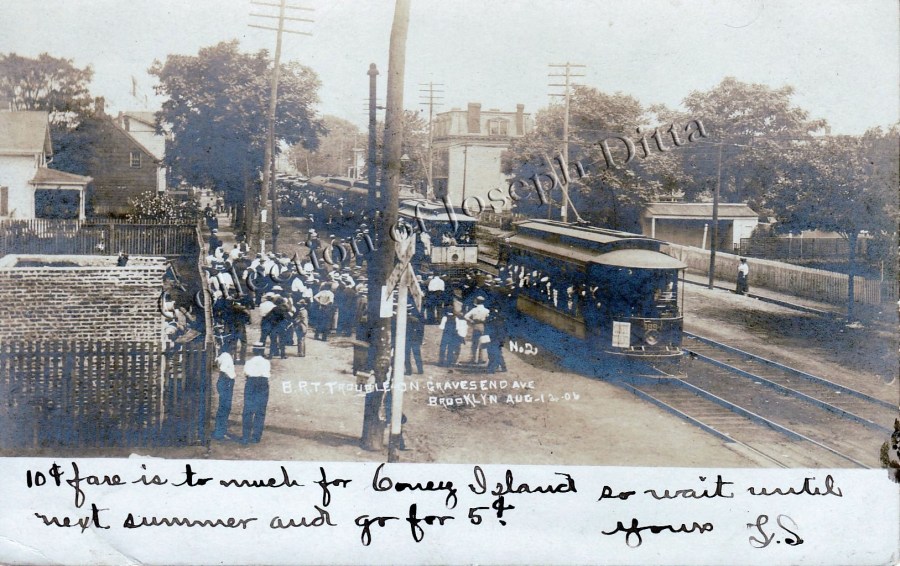 Collection of Joseph Ditta
No 2
B.R.T TROUBLE ON GRAVESEND AVE
BROOKLYN AUG-12-06
10¢ fare is to much for Coney Island so wait until
next summer and go for 5¢. Yours L.S